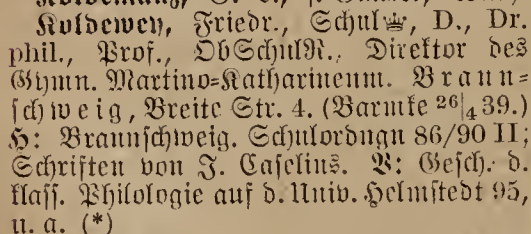 Koldewey, Friedr., Schul♕, D., Dr.
phil., Prof., ObSchulR., Direktor des
Gymn. Martino=Katharineum. Braun=
schweig, Breite Str. 4. (Barmke 26|4 39.)
H: Braunschweig. Schulordngn 86/90 II,
Schriften von J. Caselius. V: Gesch. d.
klass. Philologie auf d. Univ. Helmstedt 95,
u. a. (*)